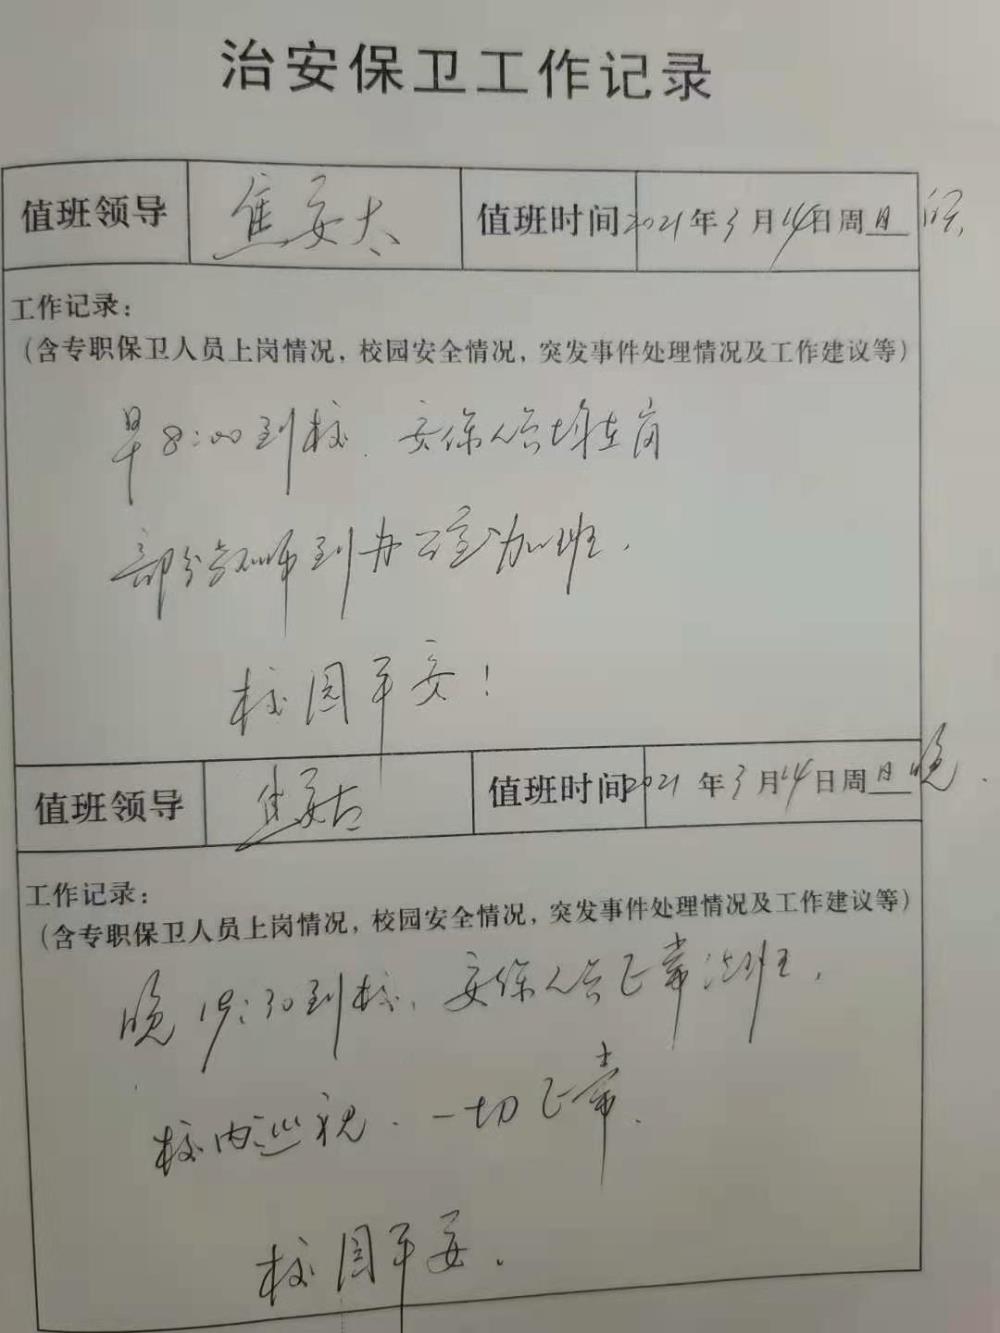 治安保卫工作记录
值班领导 焦安太 值班时间 2021年3月14日周日
工作记录：
（含专职保卫人员上岗情况，校园安全情况，突发事件处理情况及工作建议等）
早8:00到校. 安保人员均在岗
部分教师到办公室加班.
校园平安！
值班领导 焦安太 值班时间 2021年3月14日周日 晚.
工作记录：
（含专职保卫人员上岗情况，校园安全情况，突发事件处理情况及工作建议等）
晚 19:30到校, 安保人员正常值班,
校内巡视. 一切正常.
校园平安.